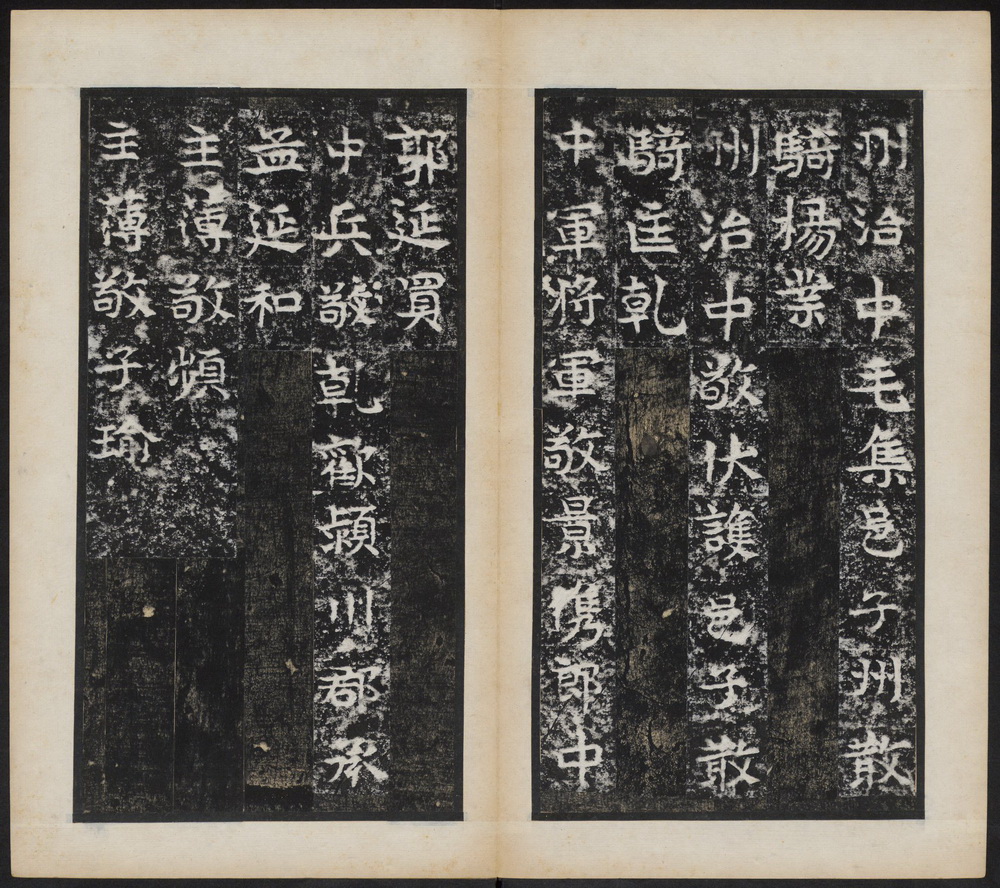 州治中毛集邑子州散
騎楊業
州治中敬伏護邑子散
騎匡乾
中軍將軍敬景儁郎中
郭延買
中兵敬乹勸潁川郡丞
孟延和
主薄敬頻
主薄敬子瑜